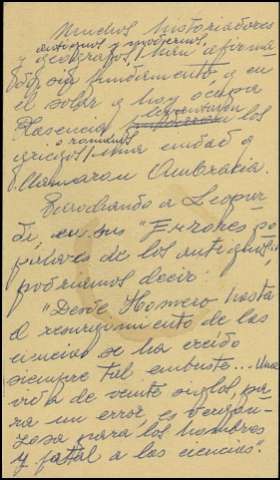 Muchos historiadores
antiguos y modernos,
y geógrafos, han afirma-
do, sin fundamento, q en
el solar q hoy ocupa
Plasencia, levantaron los
o romanos
griegos, una ciudad q
llamaron Ambrakia.
Parodiando a Leopar-
di, en sus "Errores po-
pulares de los antiguos",
podríamos decir:
"Desde Homero hasta
el resurgimiento de las
ciencias se ha creído
siempre tal embuste... Una
vida de veinte siglos, pa-
ra un error, es vergon-
zosa para los hombres
y fatal a las ciencias".